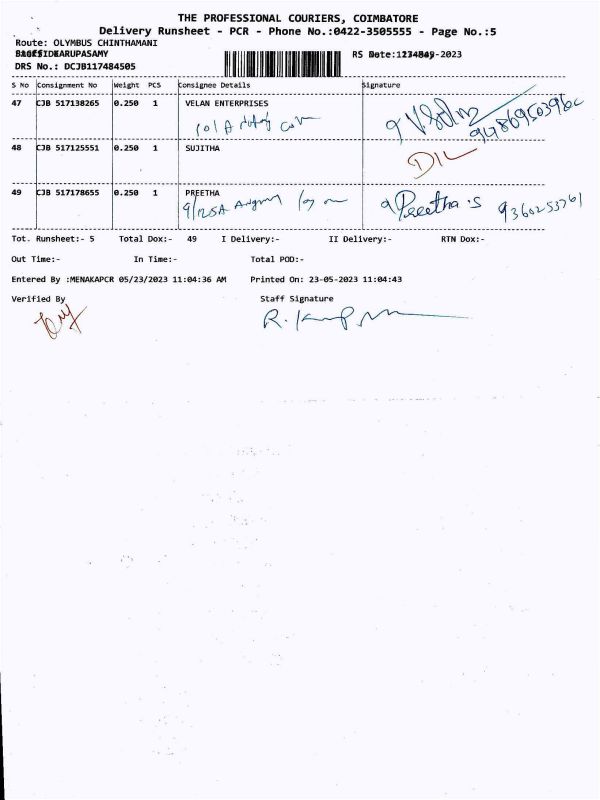 THE PROFESSIONAL COURIERS, COIMBATORE
Delivery Runsheet - PCR - Phone No.:0422-3505555 - Page No.:5
Route: OLYMBUS CHINTHAMANI
KARUPASAMY RS Date: -2023
DRS No.: DCJB117484505
S No Consignment No Weight PCS Consignee Details Signature
47 CJB 517138265 0.250 1 VELAN ENTERPRISES
48 CJB 517125551 0.250 1 SUJITHA
D/L
49 CJB 517178655 0.250 1 PREETHA
Preetha.S 9360253761
Tot. Runsheet:- 5 Total Dox:- 49 I Delivery:- II Delivery:- RTN Dox:-
Out Time:- In Time:- Total POD:-
Entered By :MENAKAPCR 05/23/2023 11:04:36 AM Printed On: 23-05-2023 11:04:43
Verified By Staff Signature